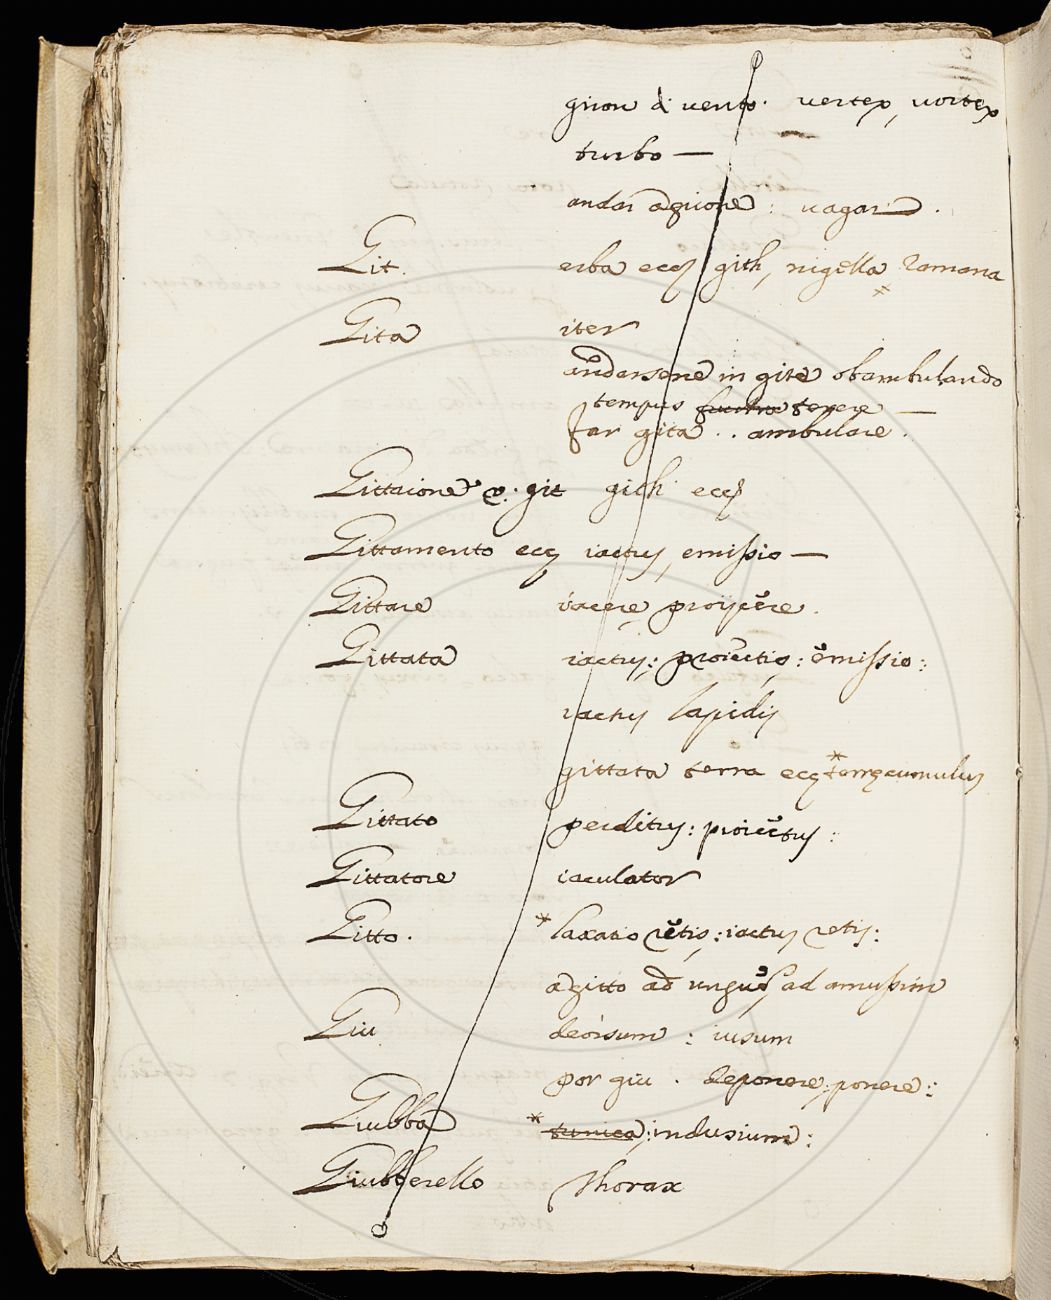 giron di vento. vertex, vortex
turbo —
andar a gironе: vagari.
Git. erba ecc gith, nigella Romana
Gita iter
andarsene in gite obambulando
tempus terere —
far gita .. ambulare.
Gittaione v. git gith ecc
Gittamento ecc iactus, emissio —
Gittare iacere, proijcere.
Gittata iactus: proiectio: emissio:
iactus lapidis
gittata terra ecc *terrę cumulus
Gittato perditus: proiectus:
Gittatore iaculator
Gitto. *laxatio retis: iactus retis:
a gitto ad unguem ad amussim
Giu deorsum: iusum
por giu. deponere, ponere:
Giubba *tunica: indusium:
Giubberello thorax